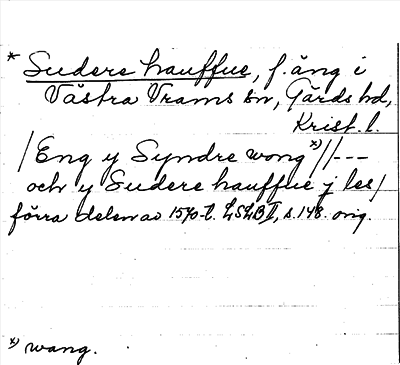 * Sudere hauffue, f. äng i
Västra Vrams sn, Gärds hd,
Krist. l.
/Eng y Syndre wong *)//---
och y Sudere hauffue j les/
förra delen av 1570-t. LSLB II, s. 148. orig.
*) wang.